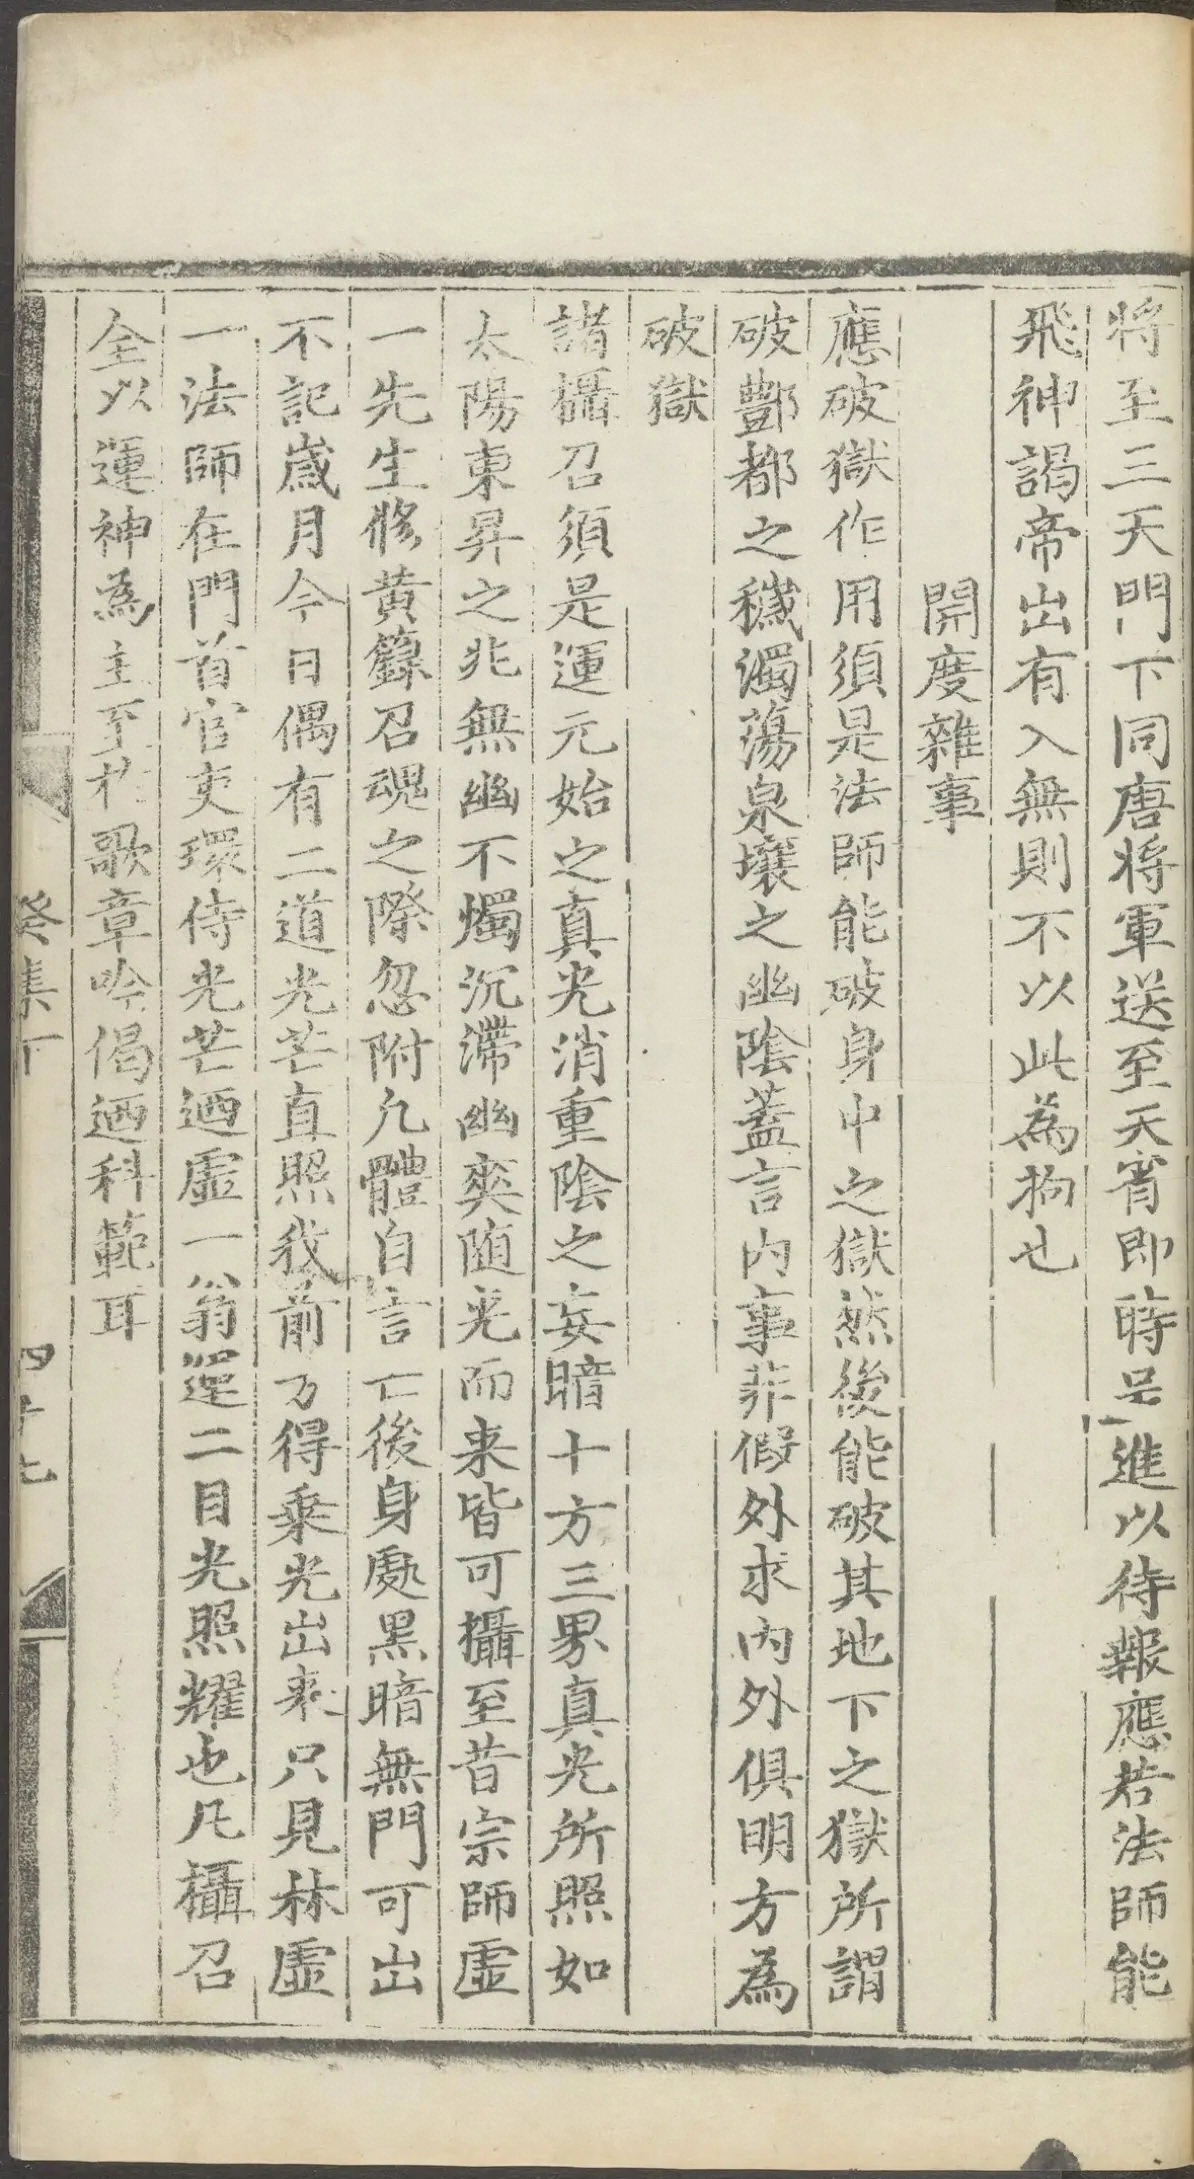 將至三天門下同唐將軍送至天宵即時呈進以待報應若法師能
飛神謁帝出有入無則不以此為拘也
開度雜事
應破獄作用須是法師能破身中之獄然後能破其地下之獄所謂
破酆都之穢濁蕩泉壤之幽陰蓋言內事非假外求內外俱明方為
破獄
諸攝召須是運元始之真光消重陰之妄暗十方三界真光所照如
太陽東昇之兆無幽不燭沉滯幽爽随光而来皆可攝至昔宗師虛
一先生修黄籙召魂之際忽附凢體自言亡後身處黑暗無門可出
不記歲月今日偶有二道光芒直照我前乃得乘光出来只見林虛
一法師在門首官吏環侍光芒迺虛一翁運二目光照耀也凡攝召
全以運神為主至於歌章吟偈迺科範耳
癸集下
四十七